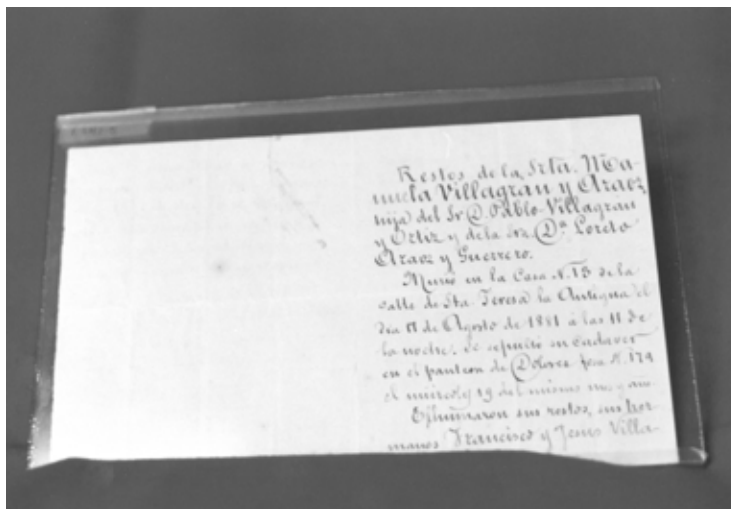 Restos de la Srta. Ma-
nuela Villagran y Araoz,
hija del Sr. D. Pablo Villagran
y Ortiz y de la Sra. Dª. Loreto
Araoz y Guerrero.
Murió en la Casa N. 13 de la
calle de Sta. Teresa la Antigua el
dia 17 de Agosto de 1881 á las 11 de
la noche. Se sepultó su Cadaver
en el panteon de Dolores fosa N. 174
el miercoles 19 del mismo mes y año
Exhumaron sus restos, sus her-
manos Francisco y Jesus Villa-